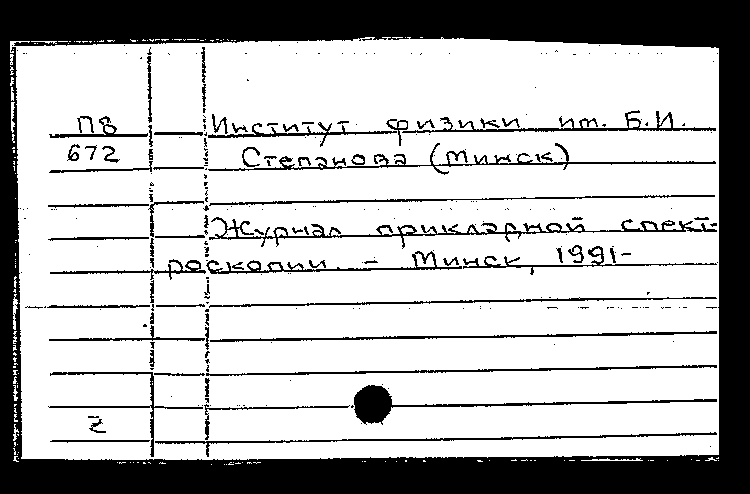 П8 Институт физики им. Б.И.
672 Степанова (Минск)
Журнал прикладной спект-
роскопии. – Минск, 1991-